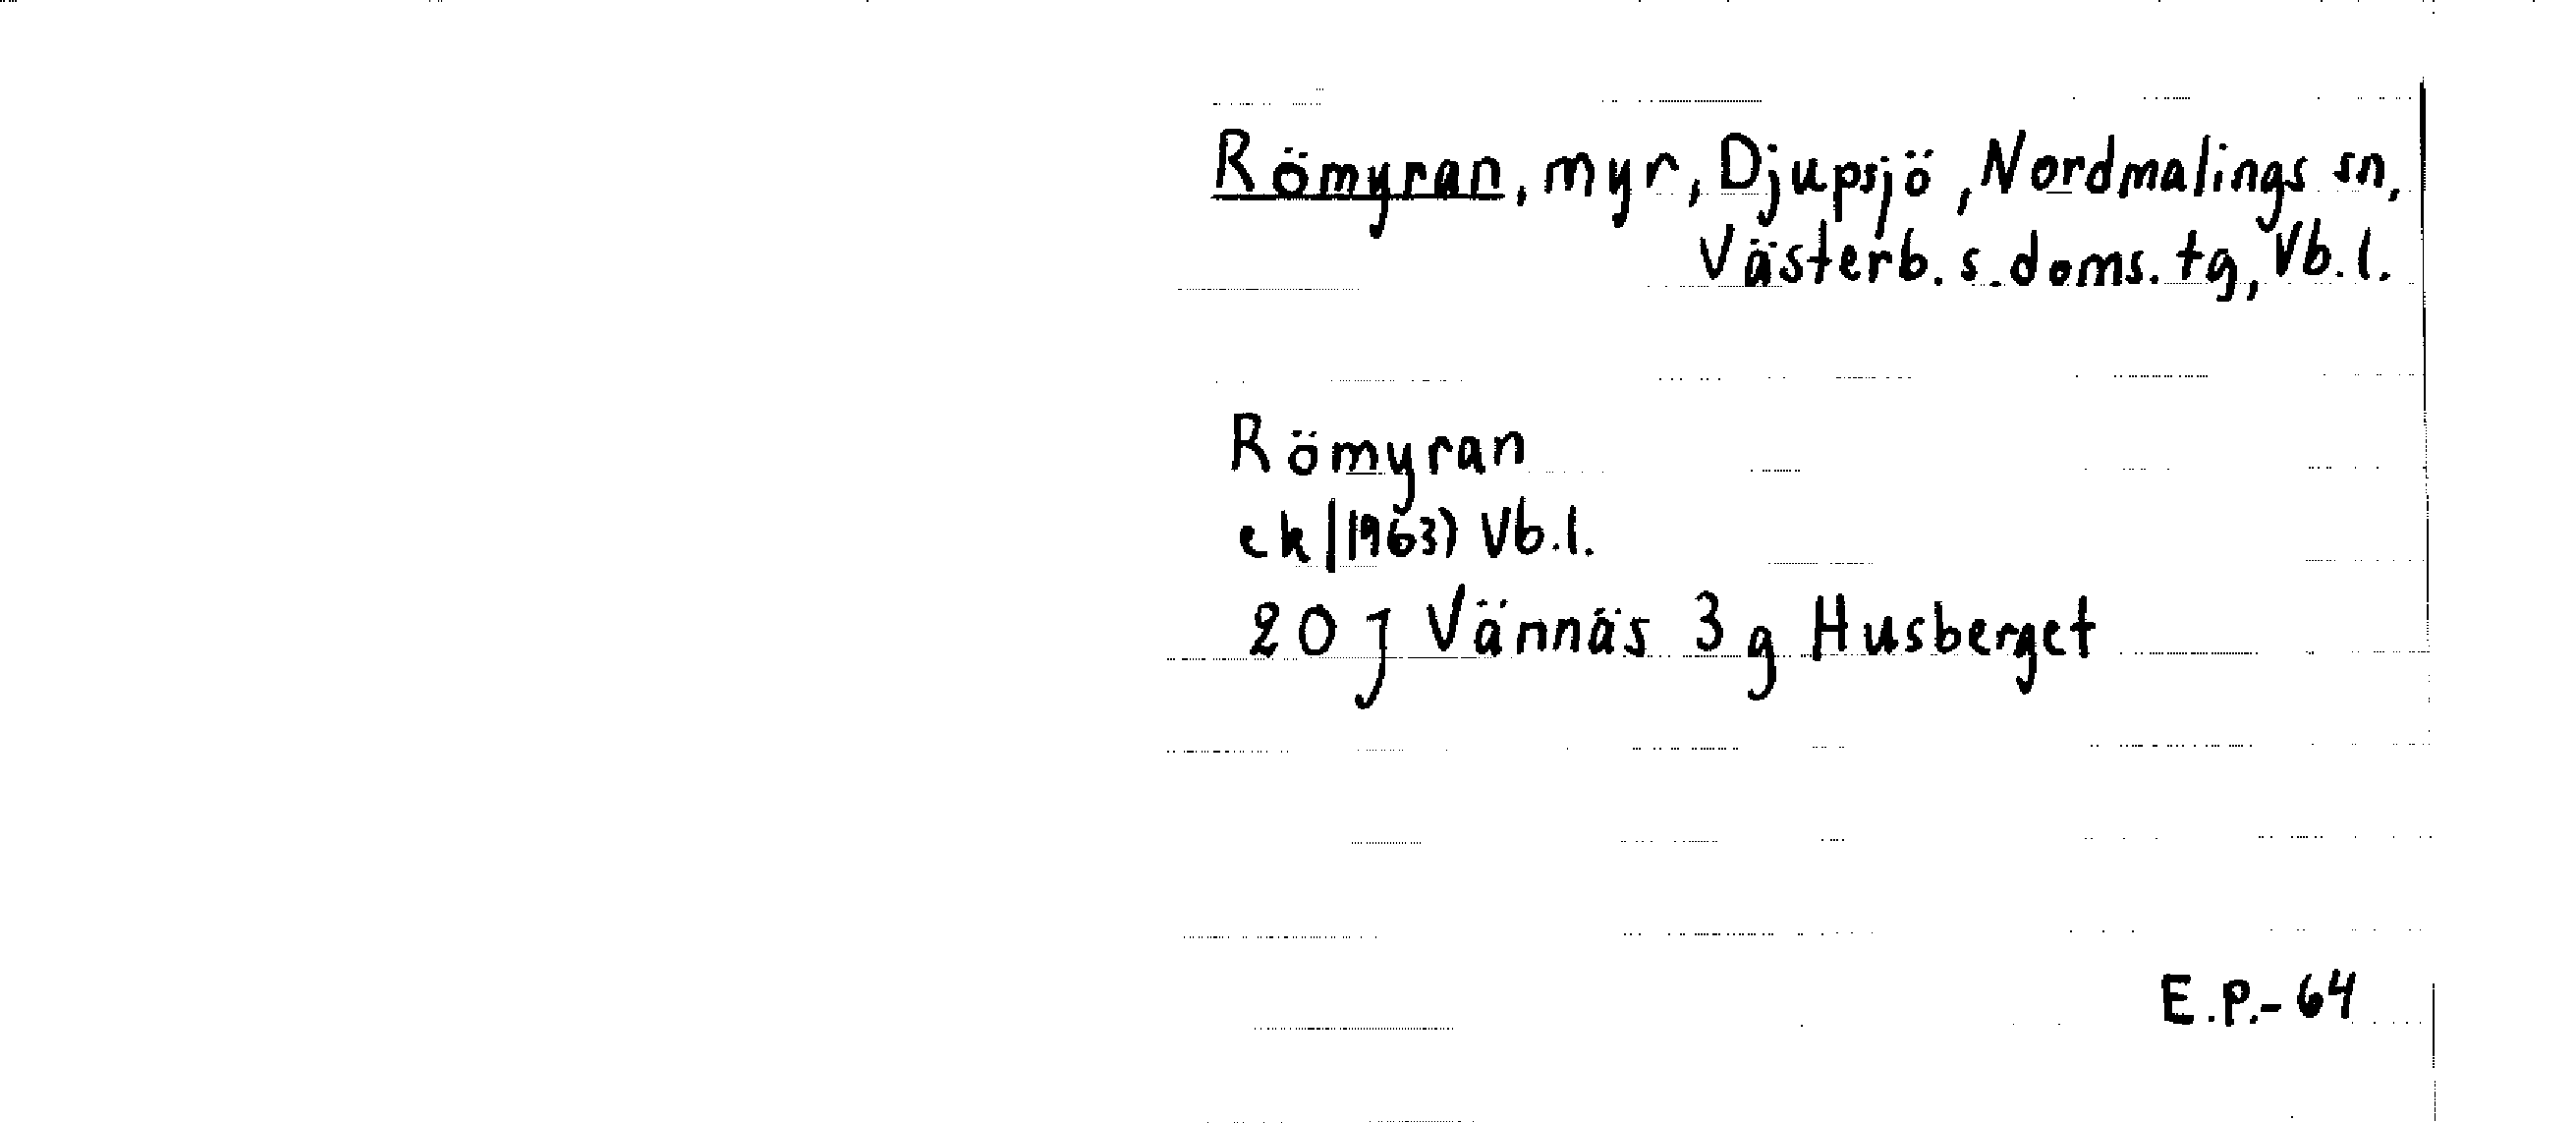 Römyran, myr, Djupsjö, Nordmalings sn,
Västerb. s. doms. tg, Vb. l.
Römyran
ek (1963) Vb. l.
20 J Vännäs 3 g Husberget
E.P.-64